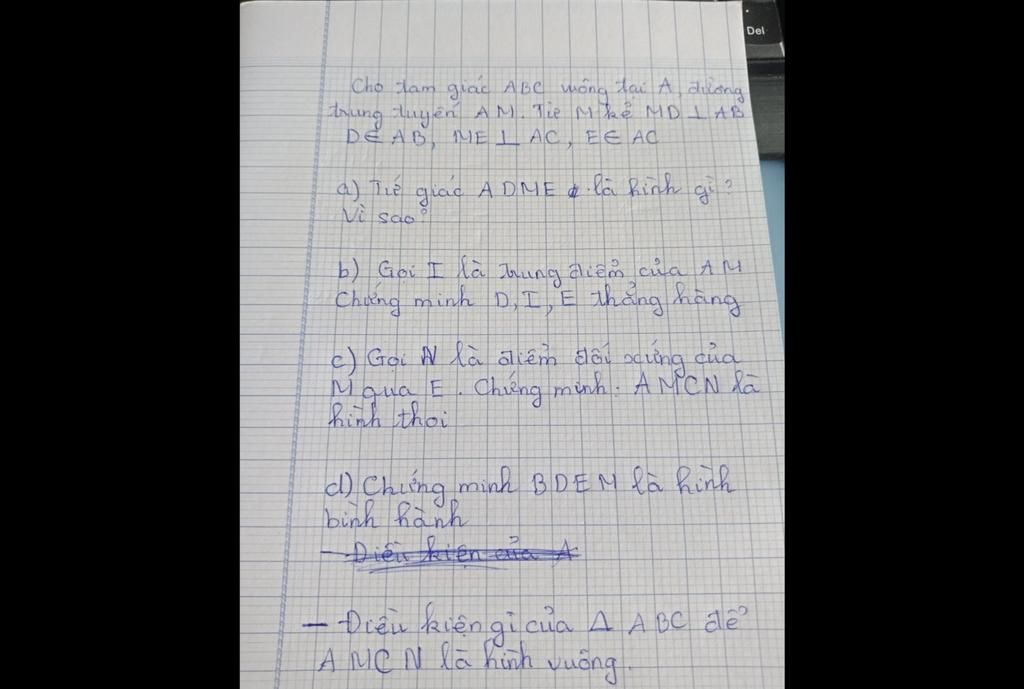 Del
Cho tam giác ABC vuông tại A, đường
trung tuyến AM. Từ M kẻ MD ⊥ AB
D ∈ AB, ME ⊥ AC, E ∈ AC
a) Tứ giác ADME là hình gì?
Vì sao?
b) Gọi I là trung điểm của AM
Chứng minh D, I, E thẳng hàng
c) Gọi N là điểm đối xứng của
M qua E. Chứng minh: AMCN là
hình thoi
d) Chứng minh BDEM là hình
bình hành
- Điều kiện của A
- Điều kiện gì của Δ ABC để
AMCN là hình vuông.